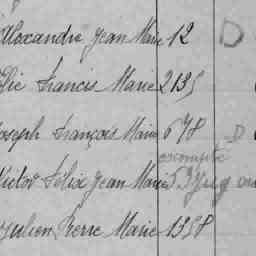 Alexandre Jean Marie 12 D
Elie Francis Marie 2135
Joseph François Marie 678 D
exempté
Victor Félix Jean Marie 53
Julien Pierre Marie 1358